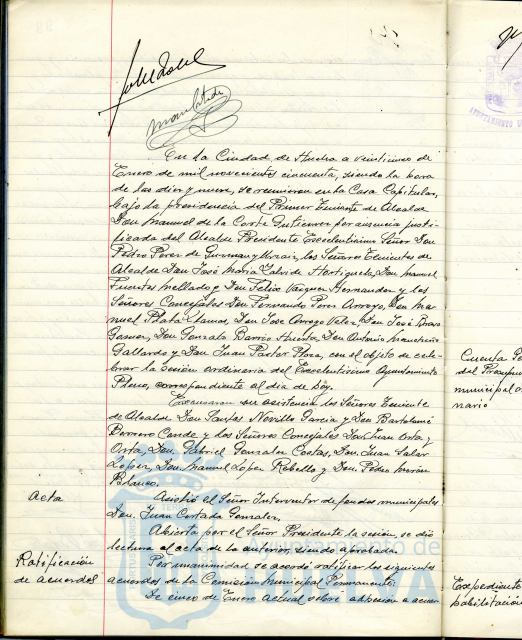 En la Ciudad de Huelva a veintiuno de
Enero de mil novecientos cincuenta, siendo la hora
de las diez y nueve, se reunieron en la Casa Capitular,
bajo la presidencia del Primer Teniente de Alcalde
Don Manuel de la Corte Gutierrez por ausencia justi-
ficada del Alcalde Presidente Excelentisimo Señor Don
Pedro Perez de Guzman y Urzaiz, los Señores Tenientes de
Alcalde Don José Maria Zalvide Hortiguela, Don Manuel
Fuentes Mellado y Don Felix Vazquez Hernandez y los
Señores Concejales Don Fernando Perez Arroyo, Don Ma-
nuel Plata Llamas, Don Jose Arroyo Velez, Don José Bravo
Gomez, Don Gonzalo Barrio Huerta, Don Antonio
Gallardo y Don Juan Pastor Plaza, con el objeto de cele-
brar la sesión ordinaria del Excelentisimo Ayuntamiento
Pleno, correspondiente al dia de hoy.
Excusaron su asistencia los Señores Teniente
de Alcalde Don Santos Novillo Garcia y Don Bartolomé
Borrero Conde y los Señores Concejales Don Juan Orta y
Orta, Don Gabriel Gonzalez Costas, Don Juan Salas
Lopez, Don Manuel Lopez Rebollo y Don Pedro Morón
Blanco.
Acta
Asistió el Señor Interventor de fondos municipales
Don Juan Cortada Gonzalez.
Abierta por el Señor Presidente la sesión, se dió
lectura al acta de la anterior, siendo aprobada.
Ratificación
de acuerdos
Por unanimidad se acordó ratificar los siguientes
acuerdos de la Comisión Municipal Permanente:
De cinco de Enero actual sobre adhesion a acuer-
Ayuntamiento de
Cuenta
del
municipal o
nario
Expediente
habilitación